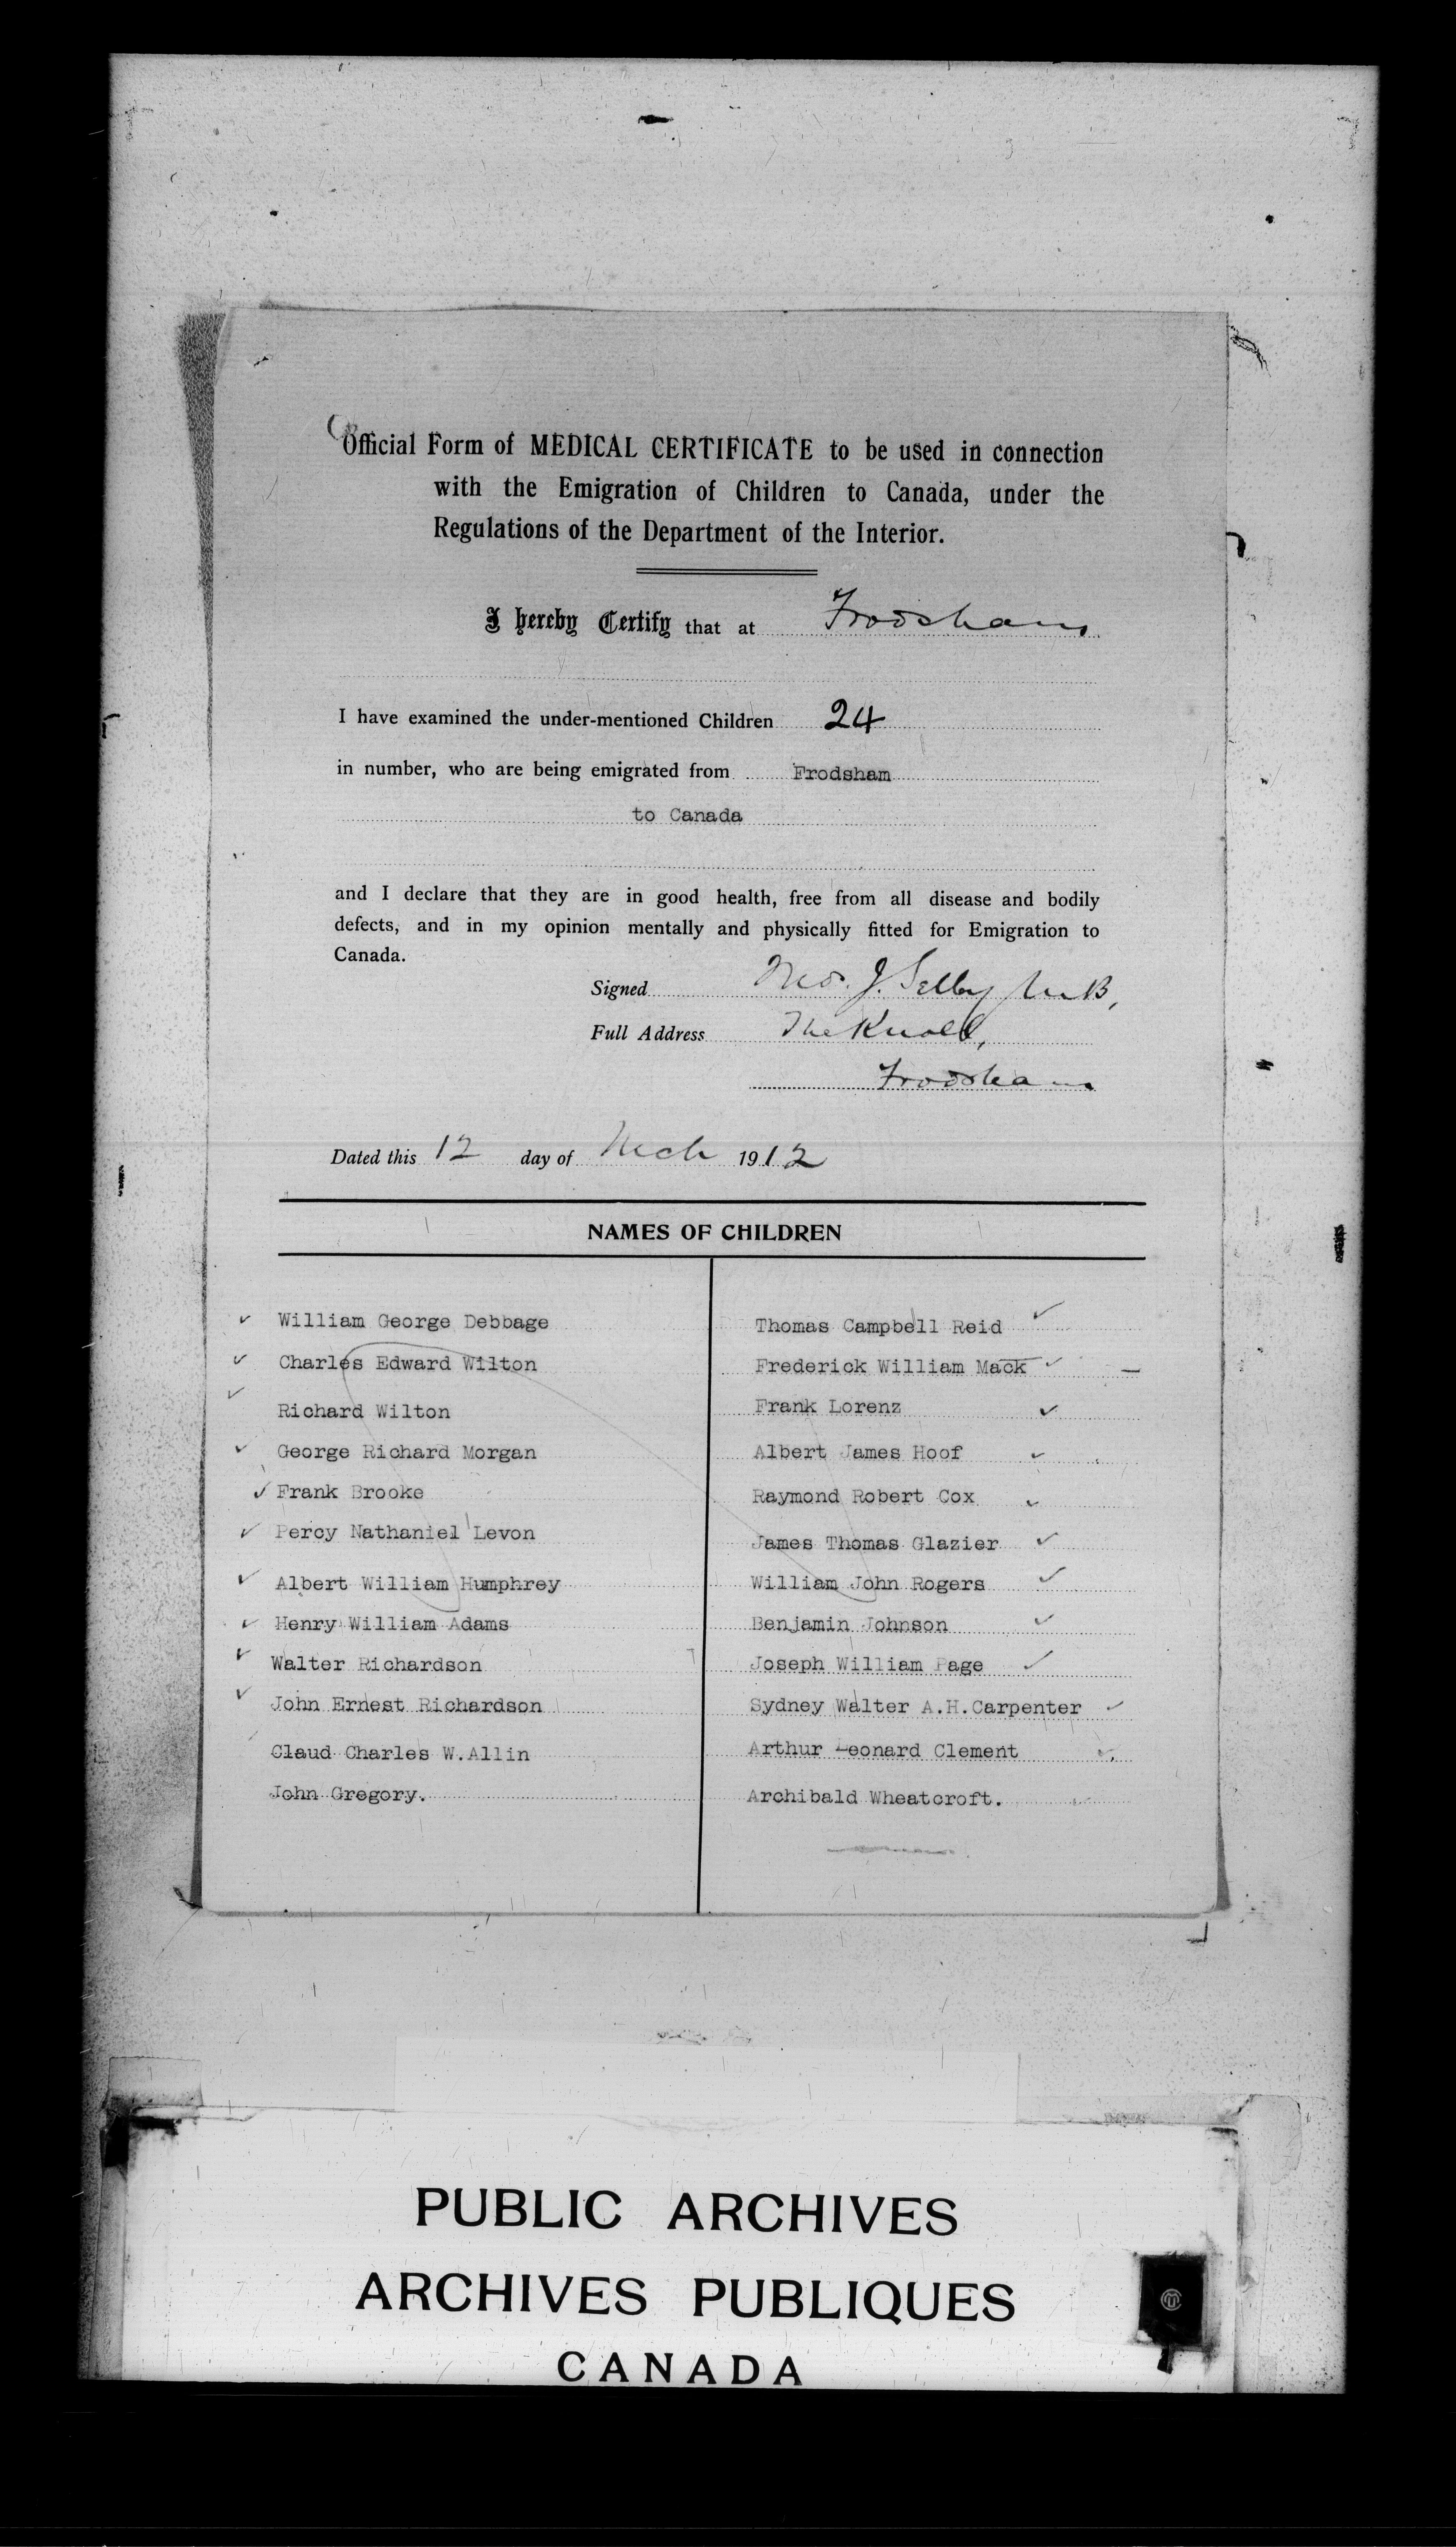 Official Form of MEDICAL CERTIFICATE to be used in connection
with the Emigration of Children to Canada, under the
Regulations of the Department of the Interior.
I hereby Certify that at Frodsham
I have examined the under-mentioned Children 24
in number, who are being emigrated from Frodsham
to Canada
and I declare that they are in good health, free from all disease and bodily
defects, and in my opinion mentally and physically fitted for Emigration to
Canada.
Signed J. Selby M.B,
Full Address The Knoll,
Frodsham
Dated this 12 day of Mch 1912
NAMES OF CHILDREN
William George Debbage
Charles Edward Wilton
Richard Wilton
George Richard Morgan
Frank Brooke
Percy Nathaniel Levon
Albert William Humphrey
Henry William Adams
Walter Richardson
John Ernest Richardson
Claud Charles W.Allin
John Gregory.
Thomas Campbell Reid
Frederick William Mack
Frank Lorenz
Albert James Hoof
Raymond Robert Cox
James Thomas Glazier
William John Rogers
Benjamin Johnson
Joseph William Page
Sydney Walter A.H.Carpenter
Arthur Leonard Clement
Archibald Wheatcroft.
PUBLIC ARCHIVES
ARCHIVES PUBLIQUES
CANADA